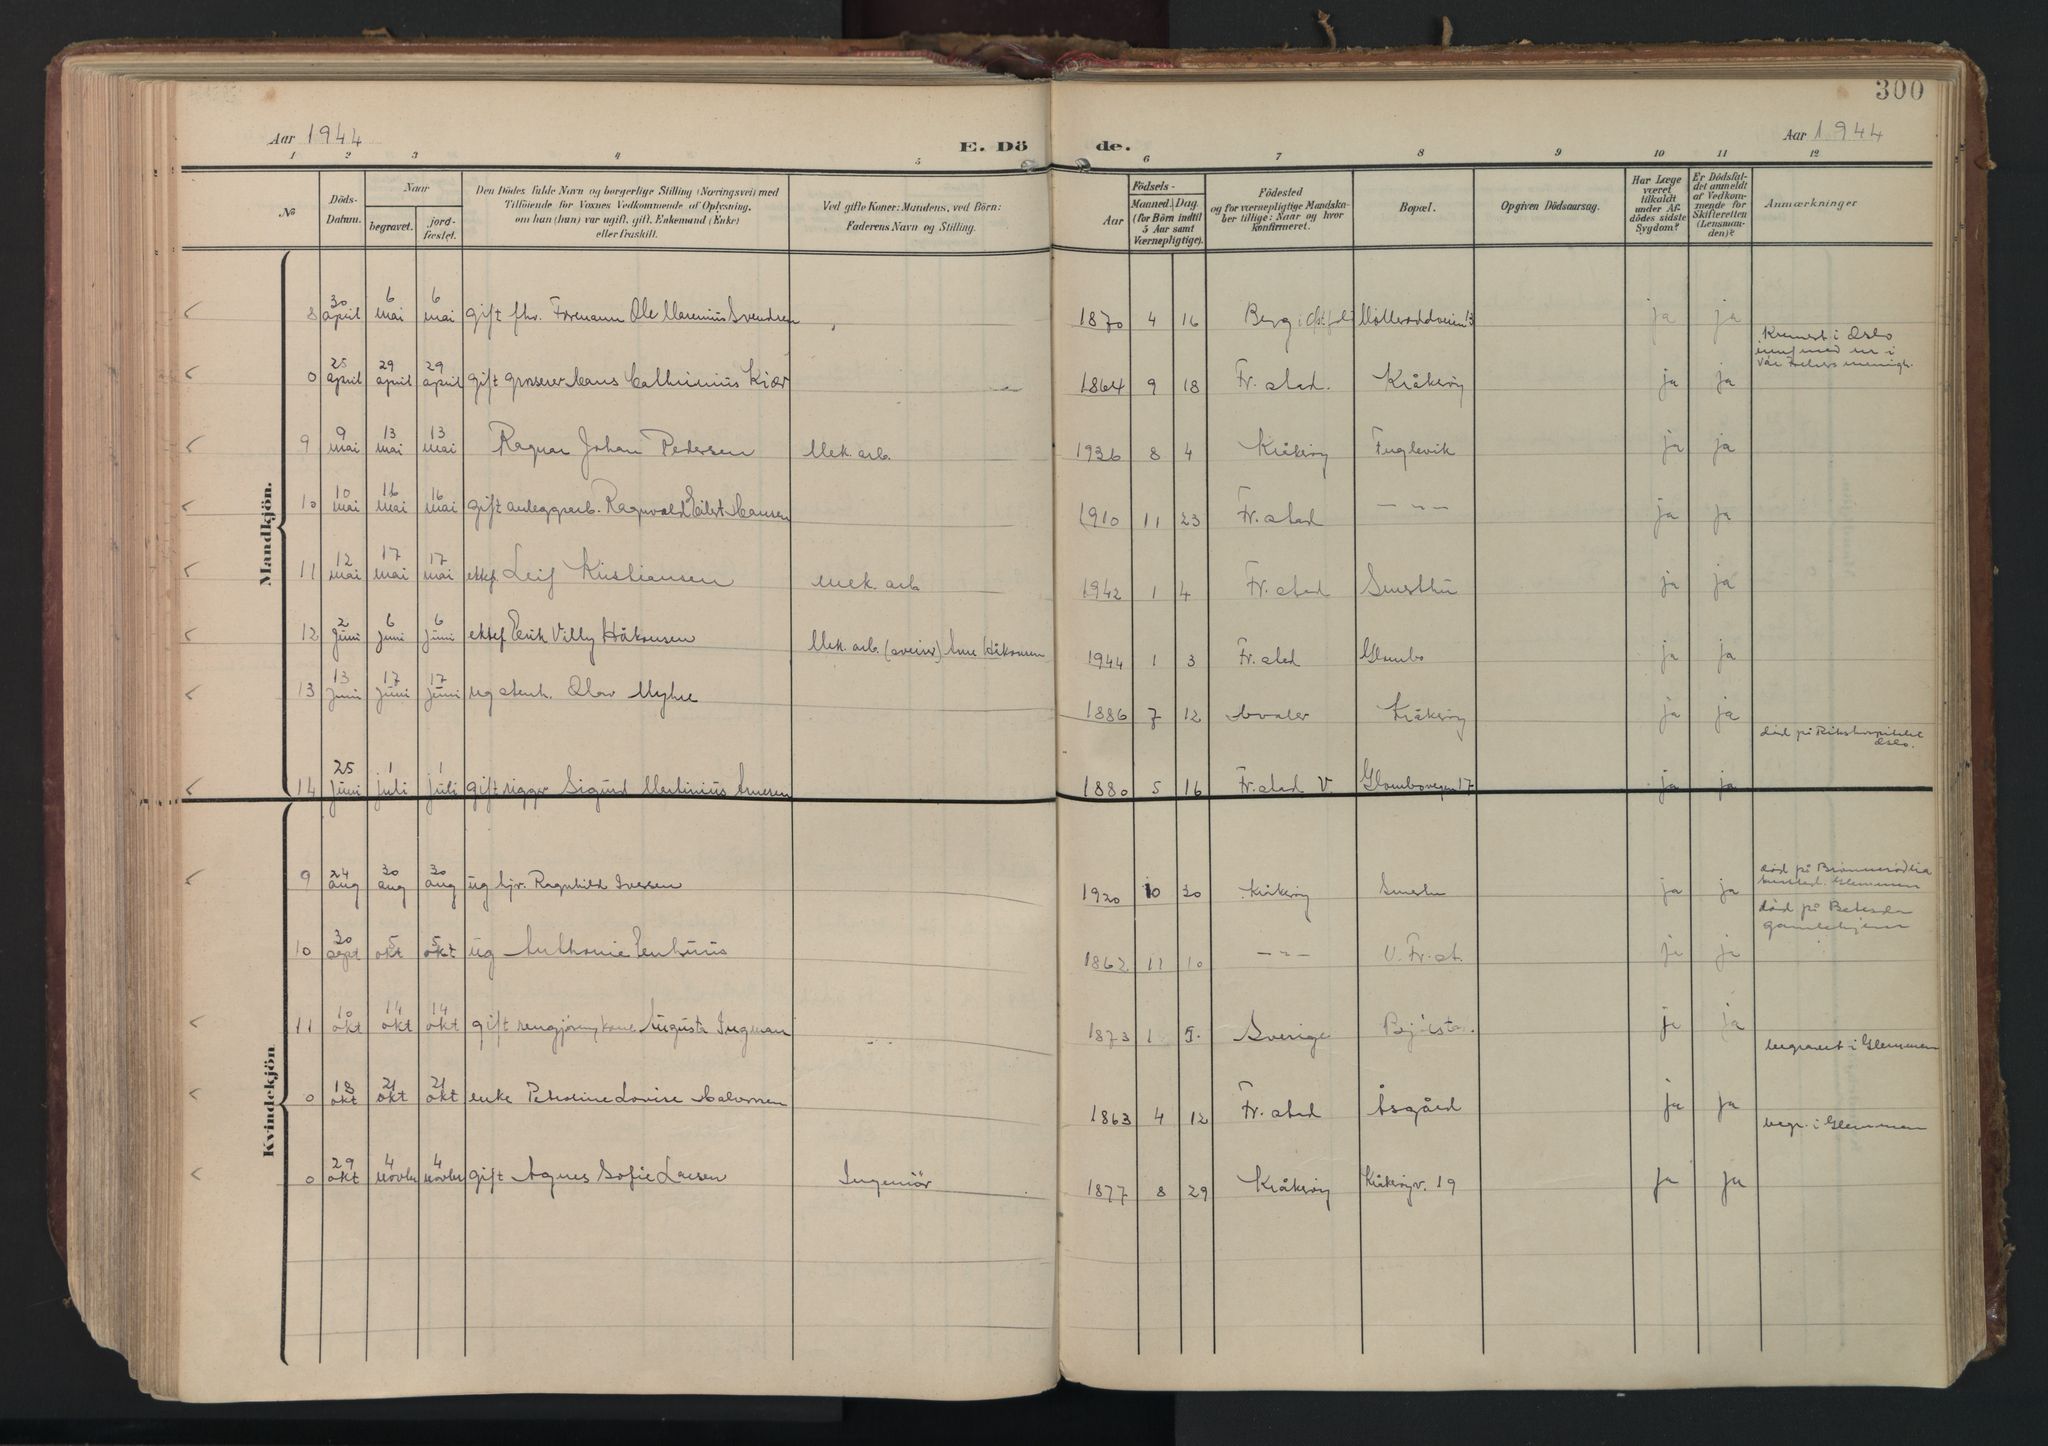 300
Aar 1944
E. Dö
de.
Aar 1944
1 2 3 4 5 6 7 8 9 10 11 12
No
Döds-Datum.
Naar
begravet.
jord-fæstet.
Den Dödes fulde Navn og borgerlige Stilling (Næringsvei) med
Tilföiende for Voxnes Vedkommende af Oplysning,
om han (hun) var ugift, gift, Enkemand (Enke)
eller fraskilt.
Ved gifte Koner: Mandens, ved Börn:
Faderens Navn og Stilling.
Födsels-
Aar
Maaned. Dag
(for Börn indtil
5 Aar samt
Værnepligtige).
Födested
og for værnepligtige Mandska-
ber tillige: Naar og hvor
Konfirmeret.
Bopæl.
Opgiven Dödsaarsag.
Har Læge
været
tilkaldt
under Af-
dödes sidste
Sygdom?
Er Dödsfal-
det anmeldt
af Vedkom-
mende for
Skifteretten
(Lensman-
den)?
Anmærkninger
Mandkjön.
8 30 april 6 mai 6 mai gift fhv. Formann Ole Marenius Svendsen 1870 4 16 Berg i Østfold 13 ja ja
0 25 april 29 april 29 april gift grosserer Hans Cathrinius Kiær 1864 9 18 Fr.stad. Kråkerøy ja ja Kremert i Oslo
9 9 mai 13 mai 13 mai Ragnar Johan Pedersen Mek. arb. 1936 8 4 Kråkerøy Fuglevik ja ja
10 10 mai 16 mai 16 mai gift anleggsarb. Ragnvald Eilert Hansen 1910 11 23 Fr.stad — " — ja ja
11 12 mai 17 mai 17 mai ektef. Leif Kristiansen mek. arb 1942 1 4 Fr.stad Smerthu ja ja
12 2 juni 6 juni 6 juni ektef Erik Villy Håkonsen Mek. arb. (sveiser) Arne Håkonsen 1944 1 3 Fr.stad Glombo ja ja
13 13 juni 17 juni 17 juni ug stenh. Olav Myhre 1886 7 12 Hvaler Kråkerøy ja ja
14 25 juni 1 juli 1 juli gift rigger Sigurd Martinius Arnesen 1880 5 16 Fr.stad V. Glombovegen 17 ja ja død på Rikshospitalet Oslo.
Kvindekjön
9 24 aug 30 aug 30 aug ug hjv. Ragnhild Iversen 1920 10 30 Kråkerøy ja ja død på
10 30 sept 5 okt 5 okt ug Anthonie 1862 11 10 — " — V. Fr.st. ja ja død på Betesda gamlehjem
11 10 okt 14 okt 14 okt gift rengjøringkone Augusta Ingman 1873 1 5. Sverige ja ja
0 18 okt 21 okt 21 okt enke Petroline Lovise Halvorsen 1863 4 12 Fr.stad Åsgård ja ja begravet i Glemmen
0 29 okt 4 novbr 4 novbr gift Agnes Sofie Larsen Ingeniör 1877 8 29 Kråkerøy Kråkerøyv. 19 ja ja begr. i Glemmen